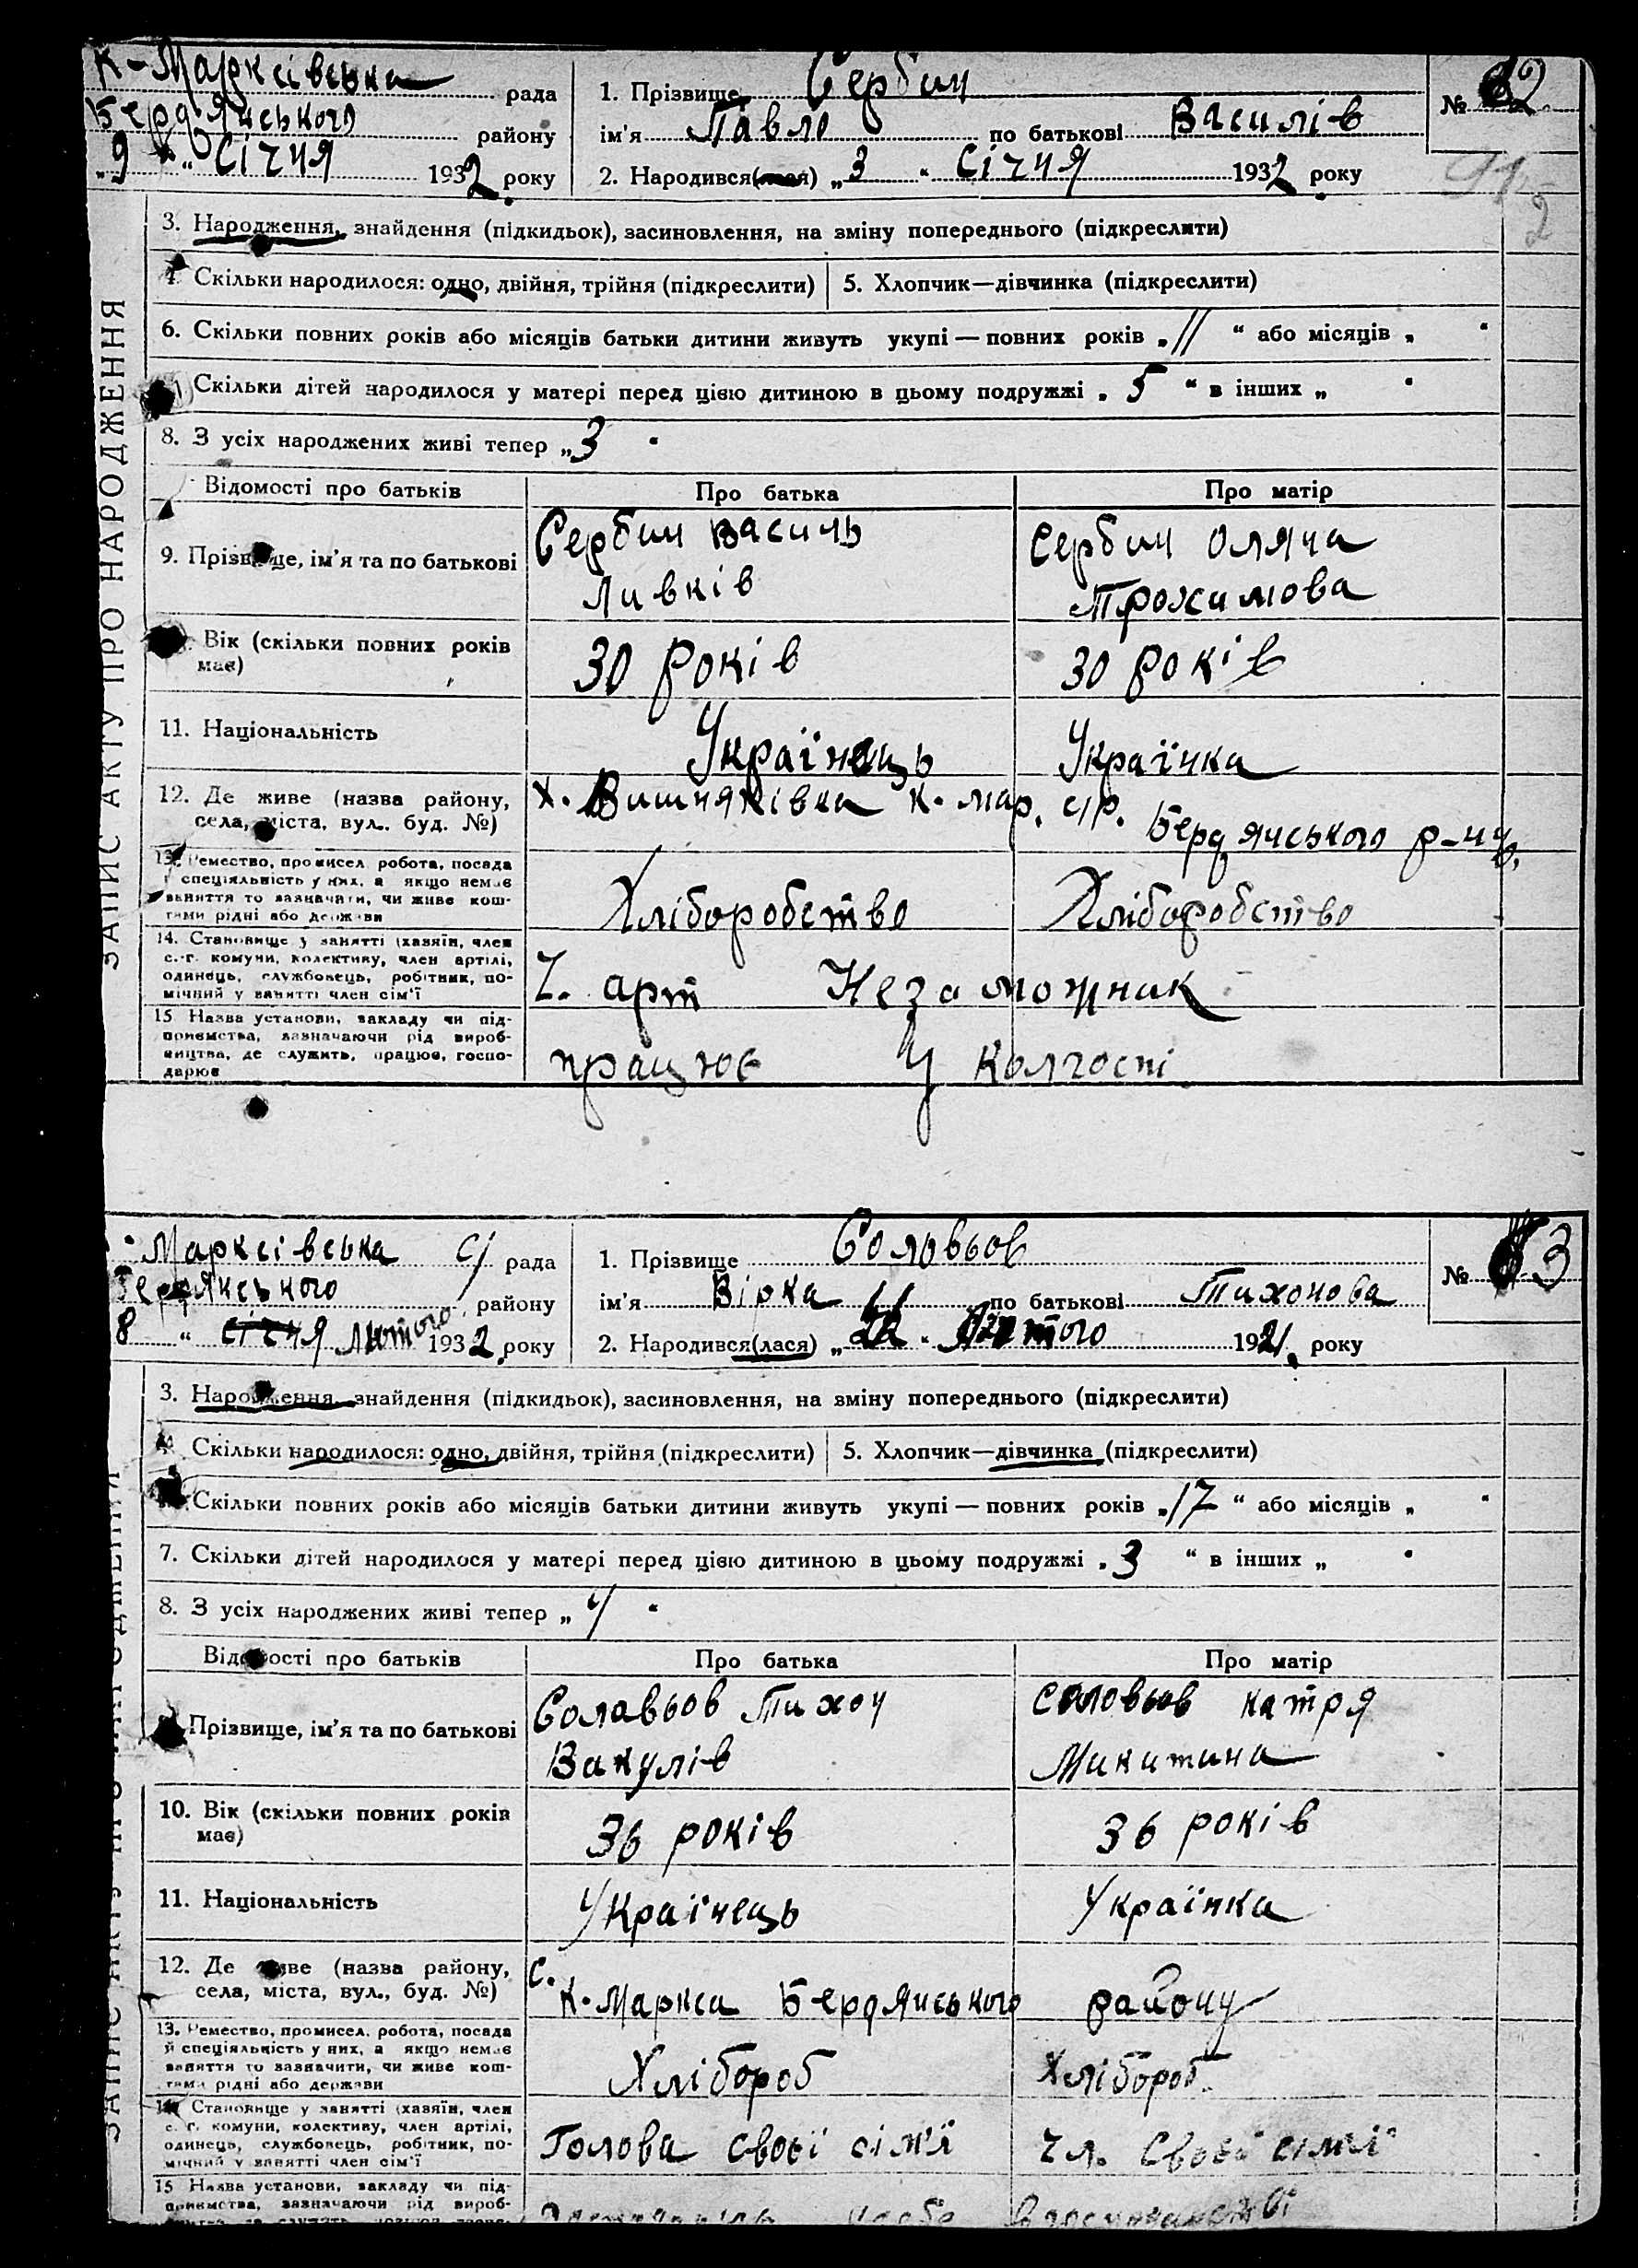 К-Марксівська рада
Бердянського району
„9 “ Січня 1932 року
1. Прізвище Сербин
ім'я Павло по батькові Василів
2. Народився(лася) „3 “ Січня 1932 року
№ 2
ЗАПИС АКТУ ПРО НАРОДЖЕННЯ
3. Народження, знайдення (підкидьок), засиновлення, на зміну попереднього (підкреслити)
4. Скільки народилося: одно, двійня, трійня (підкреслити) 5. Хлопчик—дівчинка (підкреслити)
6. Скільки повних років або місяців батьки дитини живуть укупі — повних років „11 “ або місяців „ “
Скільки дітей народилося у матері перед цією дитиною в цьому подружжі „ 5 “ в інших „ “
8. З усіх народжених живі тепер „3 “
Відомості про батьків Про батька Про матір
9. Прізвище, ім'я та по батькові
Сербин Василь
Ливків
Сербин Оляна
Трохимова
Вік (скільки повних років
має)
30 років 30 років
11. Національність Українець Українка
12. Де живе (назва району,
села, міста, вул. буд. №)
х. Вишняківка К. мар. с/р. Бердянського р-ну.
13. Ремество, промисел робота, посада
й спеціяльність у них, а якщо немає
заняття то зазначити, чи живе кош-
тами рідні або держави
Хліборобство Хліборобство
14. Становище у занятті (хазяїн, член
с.-г. комуни, колективу, член артілі,
одинець, службовець, робітник, по-
мічний у занятті член сім'ї
Ч. арт Незаможник
15 Назва установи, закладу чи під-
приємства, зазначаючи рід вироб-
ництва, де служить, працює, госпо-
дарює
працює у колгоспі
Марксівська с/ рада
Бердянського району
8 “ січня лютого 1932 року
1. Прізвище Соловьов
ім'я Вірка по батькові Тихонова
2. Народився(лася) „ “ Лютого 1921 року
№ 3
3. Народження знайдення (підкидьок), засиновлення, на зміну попереднього (підкреслити)
Скільки народилося: одно, двійня, трійня (підкреслити) 5. Хлопчик—дівчинка (підкреслити)
Скільки повних років або місяців батьки дитини живуть укупі — повних років „17 “ або місяців „ “
7. Скільки дітей народилося у матері перед цією дитиною в цьому подружжі „ 3 “ в інших „ “
8. З усіх народжених живі тепер „ 4 “
Відомості про батьків Про батька Про матір
Прізвище, ім'я та по батькові
Солавьов Тихон
Вакулів
Соловьов Катря
Микитина
10. Вік (скільки повних років
має)
36 років 36 років
11. Національність Українець Українка
12. Де живе (назва району,
села, міста, вул., буд. №)
с. К. Маркса Бердянського району
13. Ремество, промисел, робота, посада
й спеціяльність у них, а якщо немає
заняття то зазначити, чи живе кош-
тами рідні або держави
Хлібороб Хлібороб
14. Становище у занятті (хазяїн, член
с. г. комуни, колективу, член артілі,
одинець, службовець, робітник, по-
мічний у занятті член сім'ї
Голова своєї сім'ї чл. своєї сім'ї
15 Назва установи, закладу чи під-
приємства, зазначаючи рід вироб-